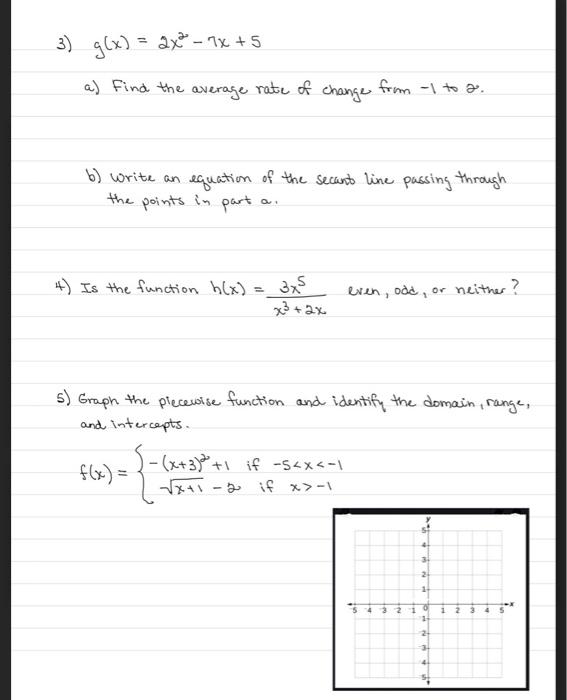 3) g(x) = 2x² - 7x + 5
a) Find the average rate of change from -1 to 2.
b) Write an equation of the secant line passing through
the points in part a.
4) Is the function h(x) = 3x⁵ / x³ + 2x even, odd, or neither?
5) Graph the piecewise function and identify the domain, range,
and intercepts.
f(x) = { -(x+3)² + 1 if -5 < x < -1
√x+1 - 2 if x > -1
y
5
4
3
2
1
5 4 3 2 1 0 1 2 3 4 5 x
1
2
3
4
5